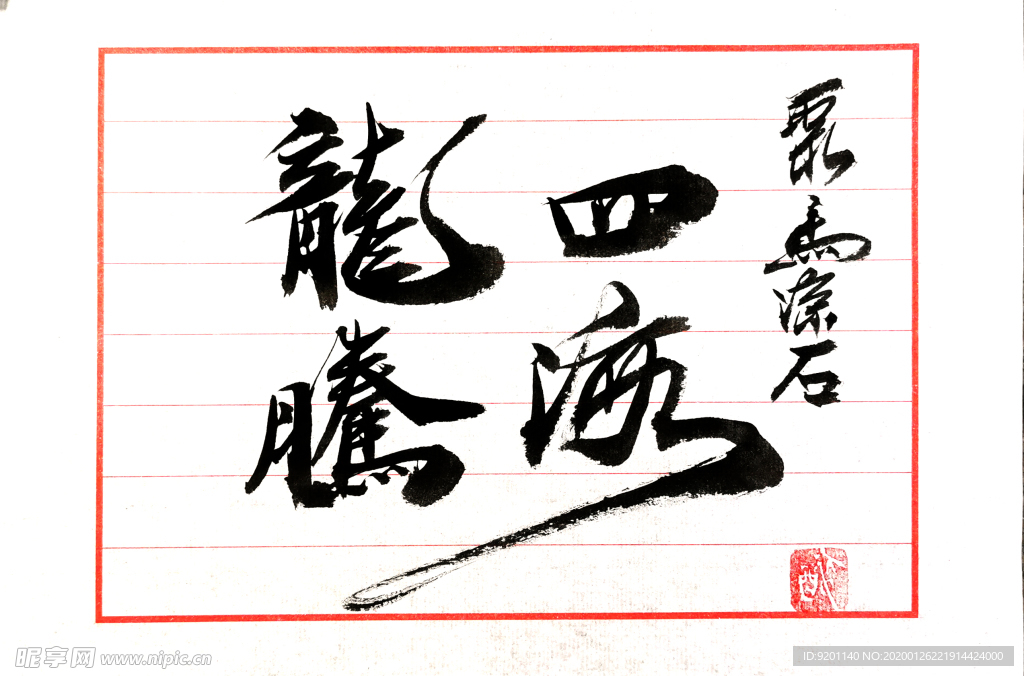 四海
龍騰
馬
石
昵享网 www.nipic.cn
ID:9201140 NO:20200126221914424000